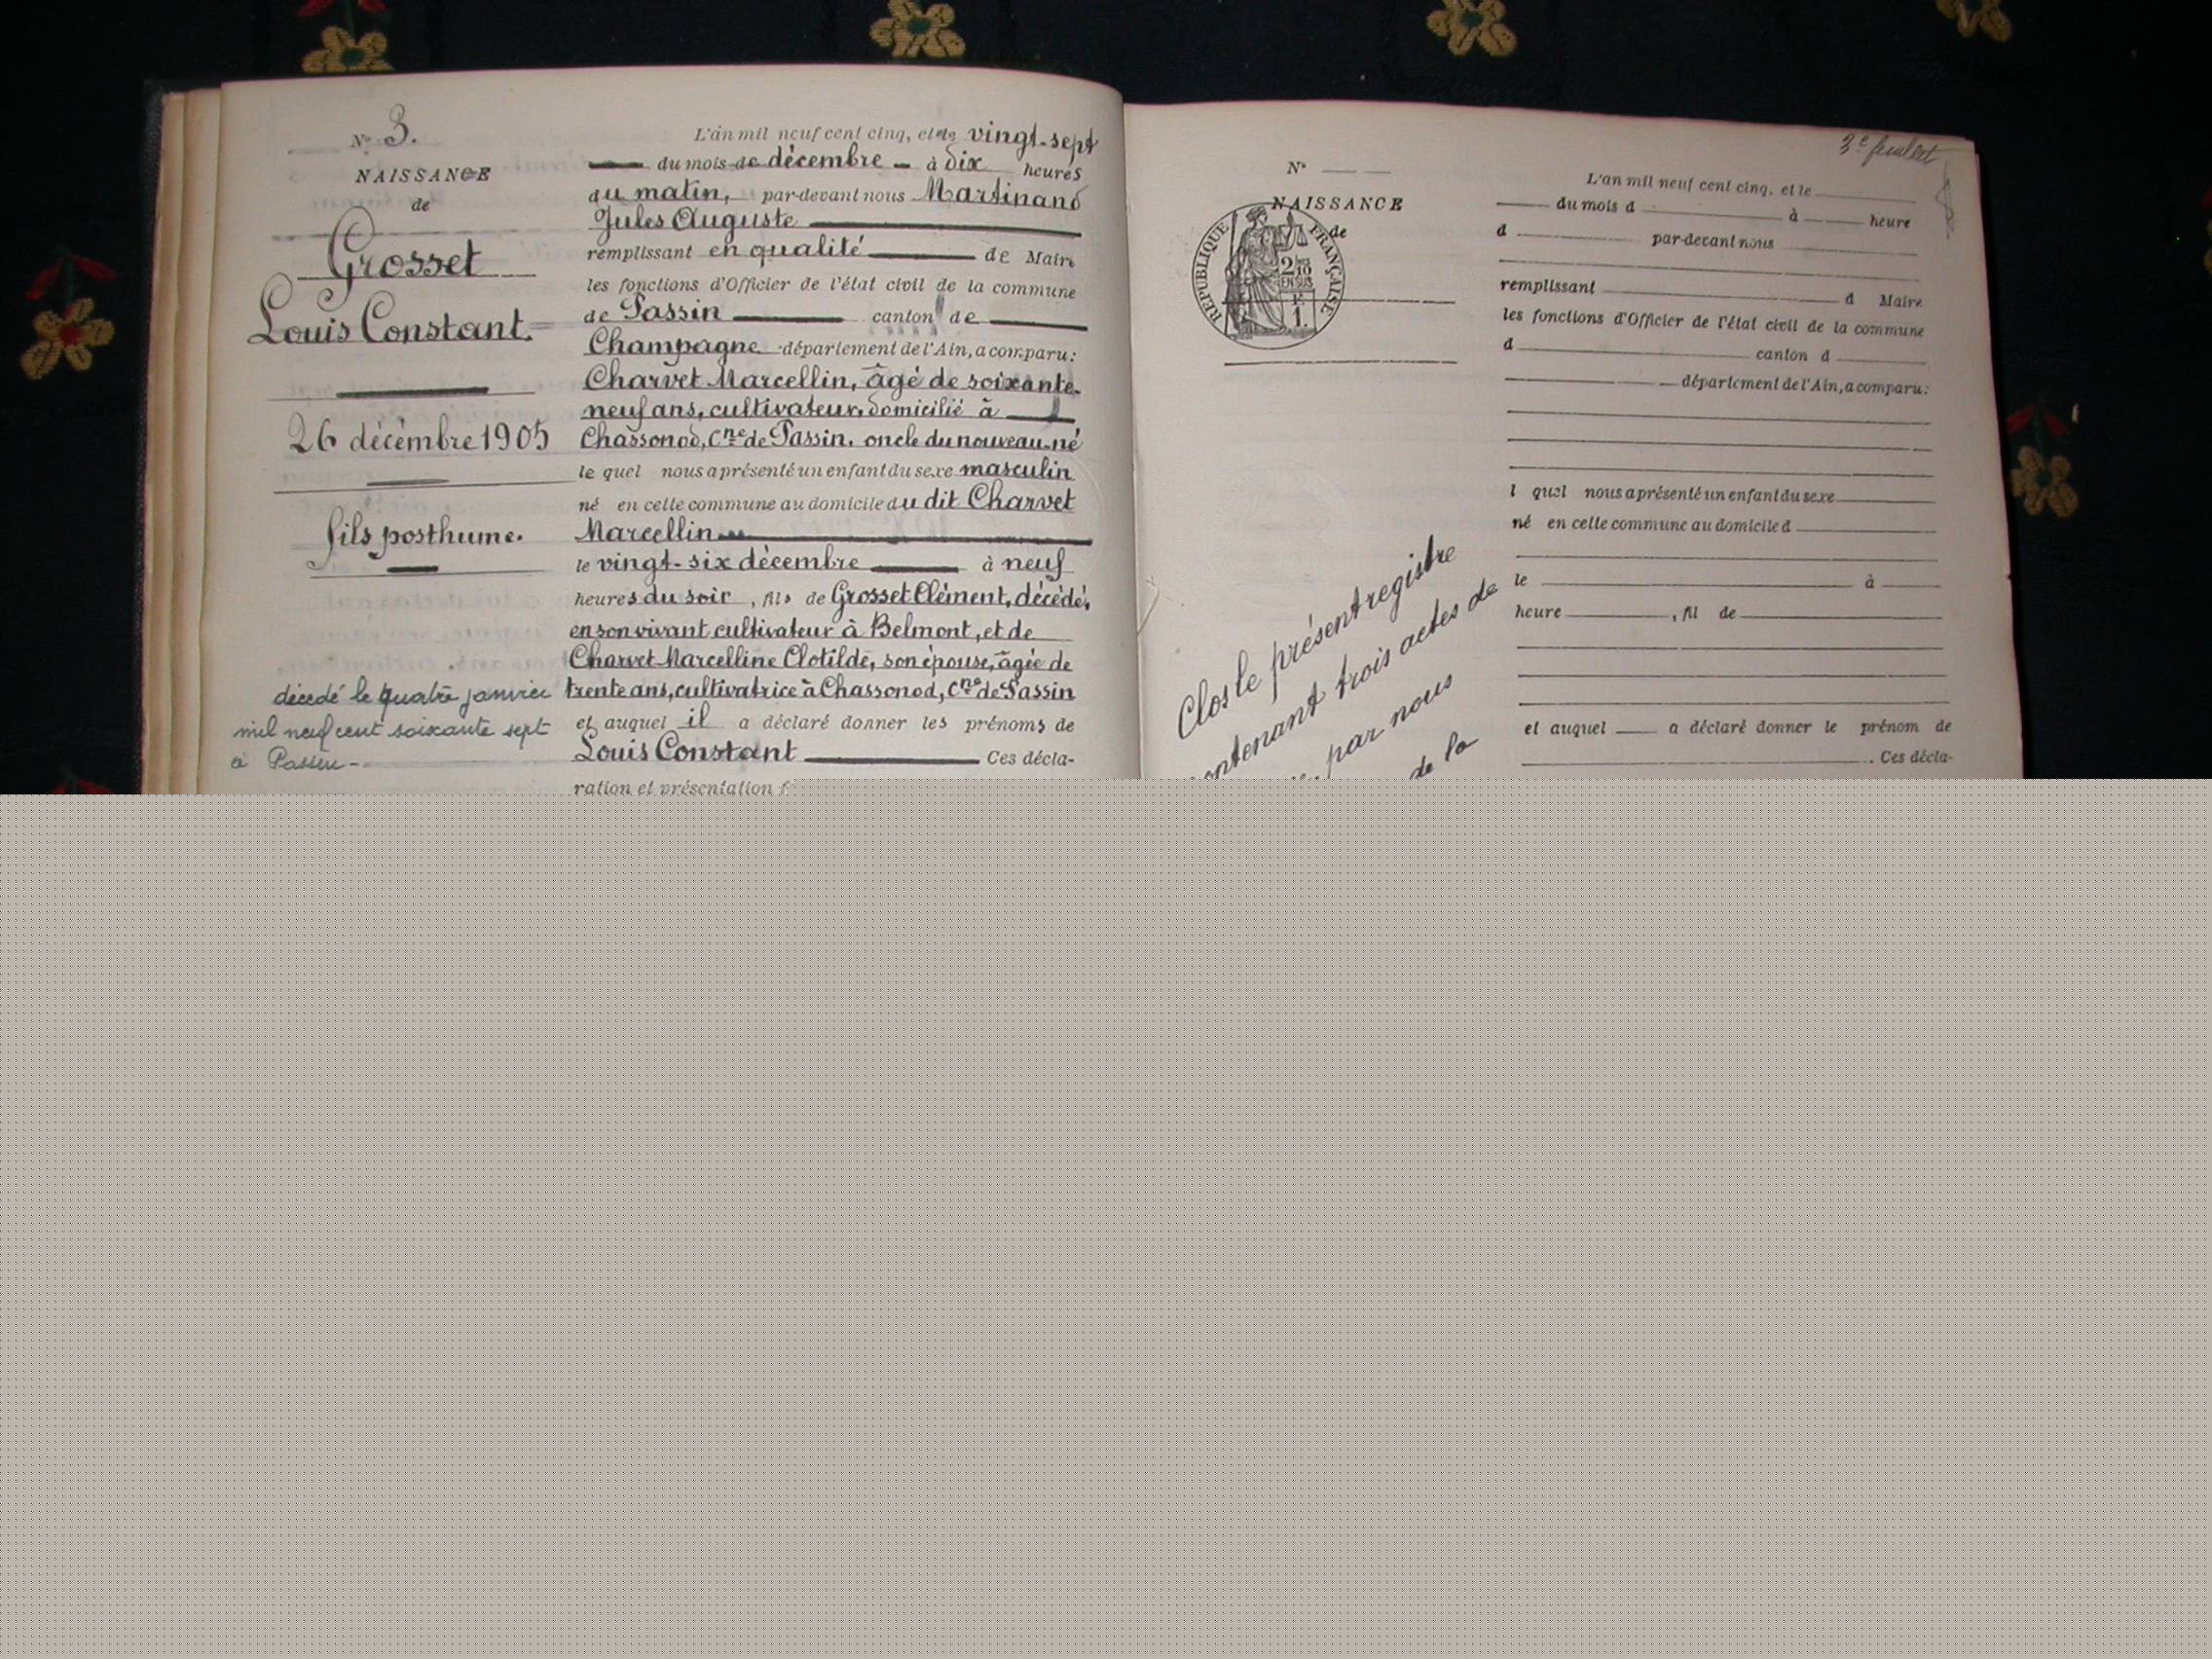 N° 3.
NAISSANCE
de
Grosset
Louis Constant.
26 décembre 1905
fils posthume.
décédé le quatre janvier
mil neuf cent soixante sept
à Passin -
L'an mil neuf cent cinq, et le vingt-sept
du mois de décembre à dix heures
du matin, par-devant nous Martinand
Jules Auguste
remplissant en qualité de Maire
les fonctions d'Officier de l'état civil de la commune
de Passin canton de
Champagne département de l'Ain, a comparu:
Charvet Marcellin, âgé de soixante-
neuf ans, cultivateur, domicilié à
Chassonod, Cne de Passin, oncle du nouveau-né
lequel nous a présenté un enfant du sexe masculin
né en cette commune au domicile du dit Charvet
Marcellin
le vingt-six décembre à neuf
heures du soir, fils de Grosset Clément, décédé,
en son vivant cultivateur à Belmont, et de
Charvet Marcelline Clotilde, son épouse, âgée de
trente ans, cultivatrice à Chassonod, Cne de Passin
et auquel il a déclaré donner les prénoms de
Louis Constant Ces décla-
ration et présentation f
3e feuillet
N°
NAISSANCE
de
RÉPUBLIQUE FRANÇAISE
2/10
EN SUS
1F.
Clos le présent registre
contenant trois actes de
par nous
de la
L'an mil neuf cent cinq, et le
du mois d à heure
d par-devant nous
remplissant d Maire
les fonctions d'Officier de l'état civil de la commune
d canton d
département de l'Ain, a comparu:
l quel nous a présenté un enfant du sexe
né en cette commune au domicile d
le à
heure , fil de
et auquel a déclaré donner le prénom de
. Ces décla-